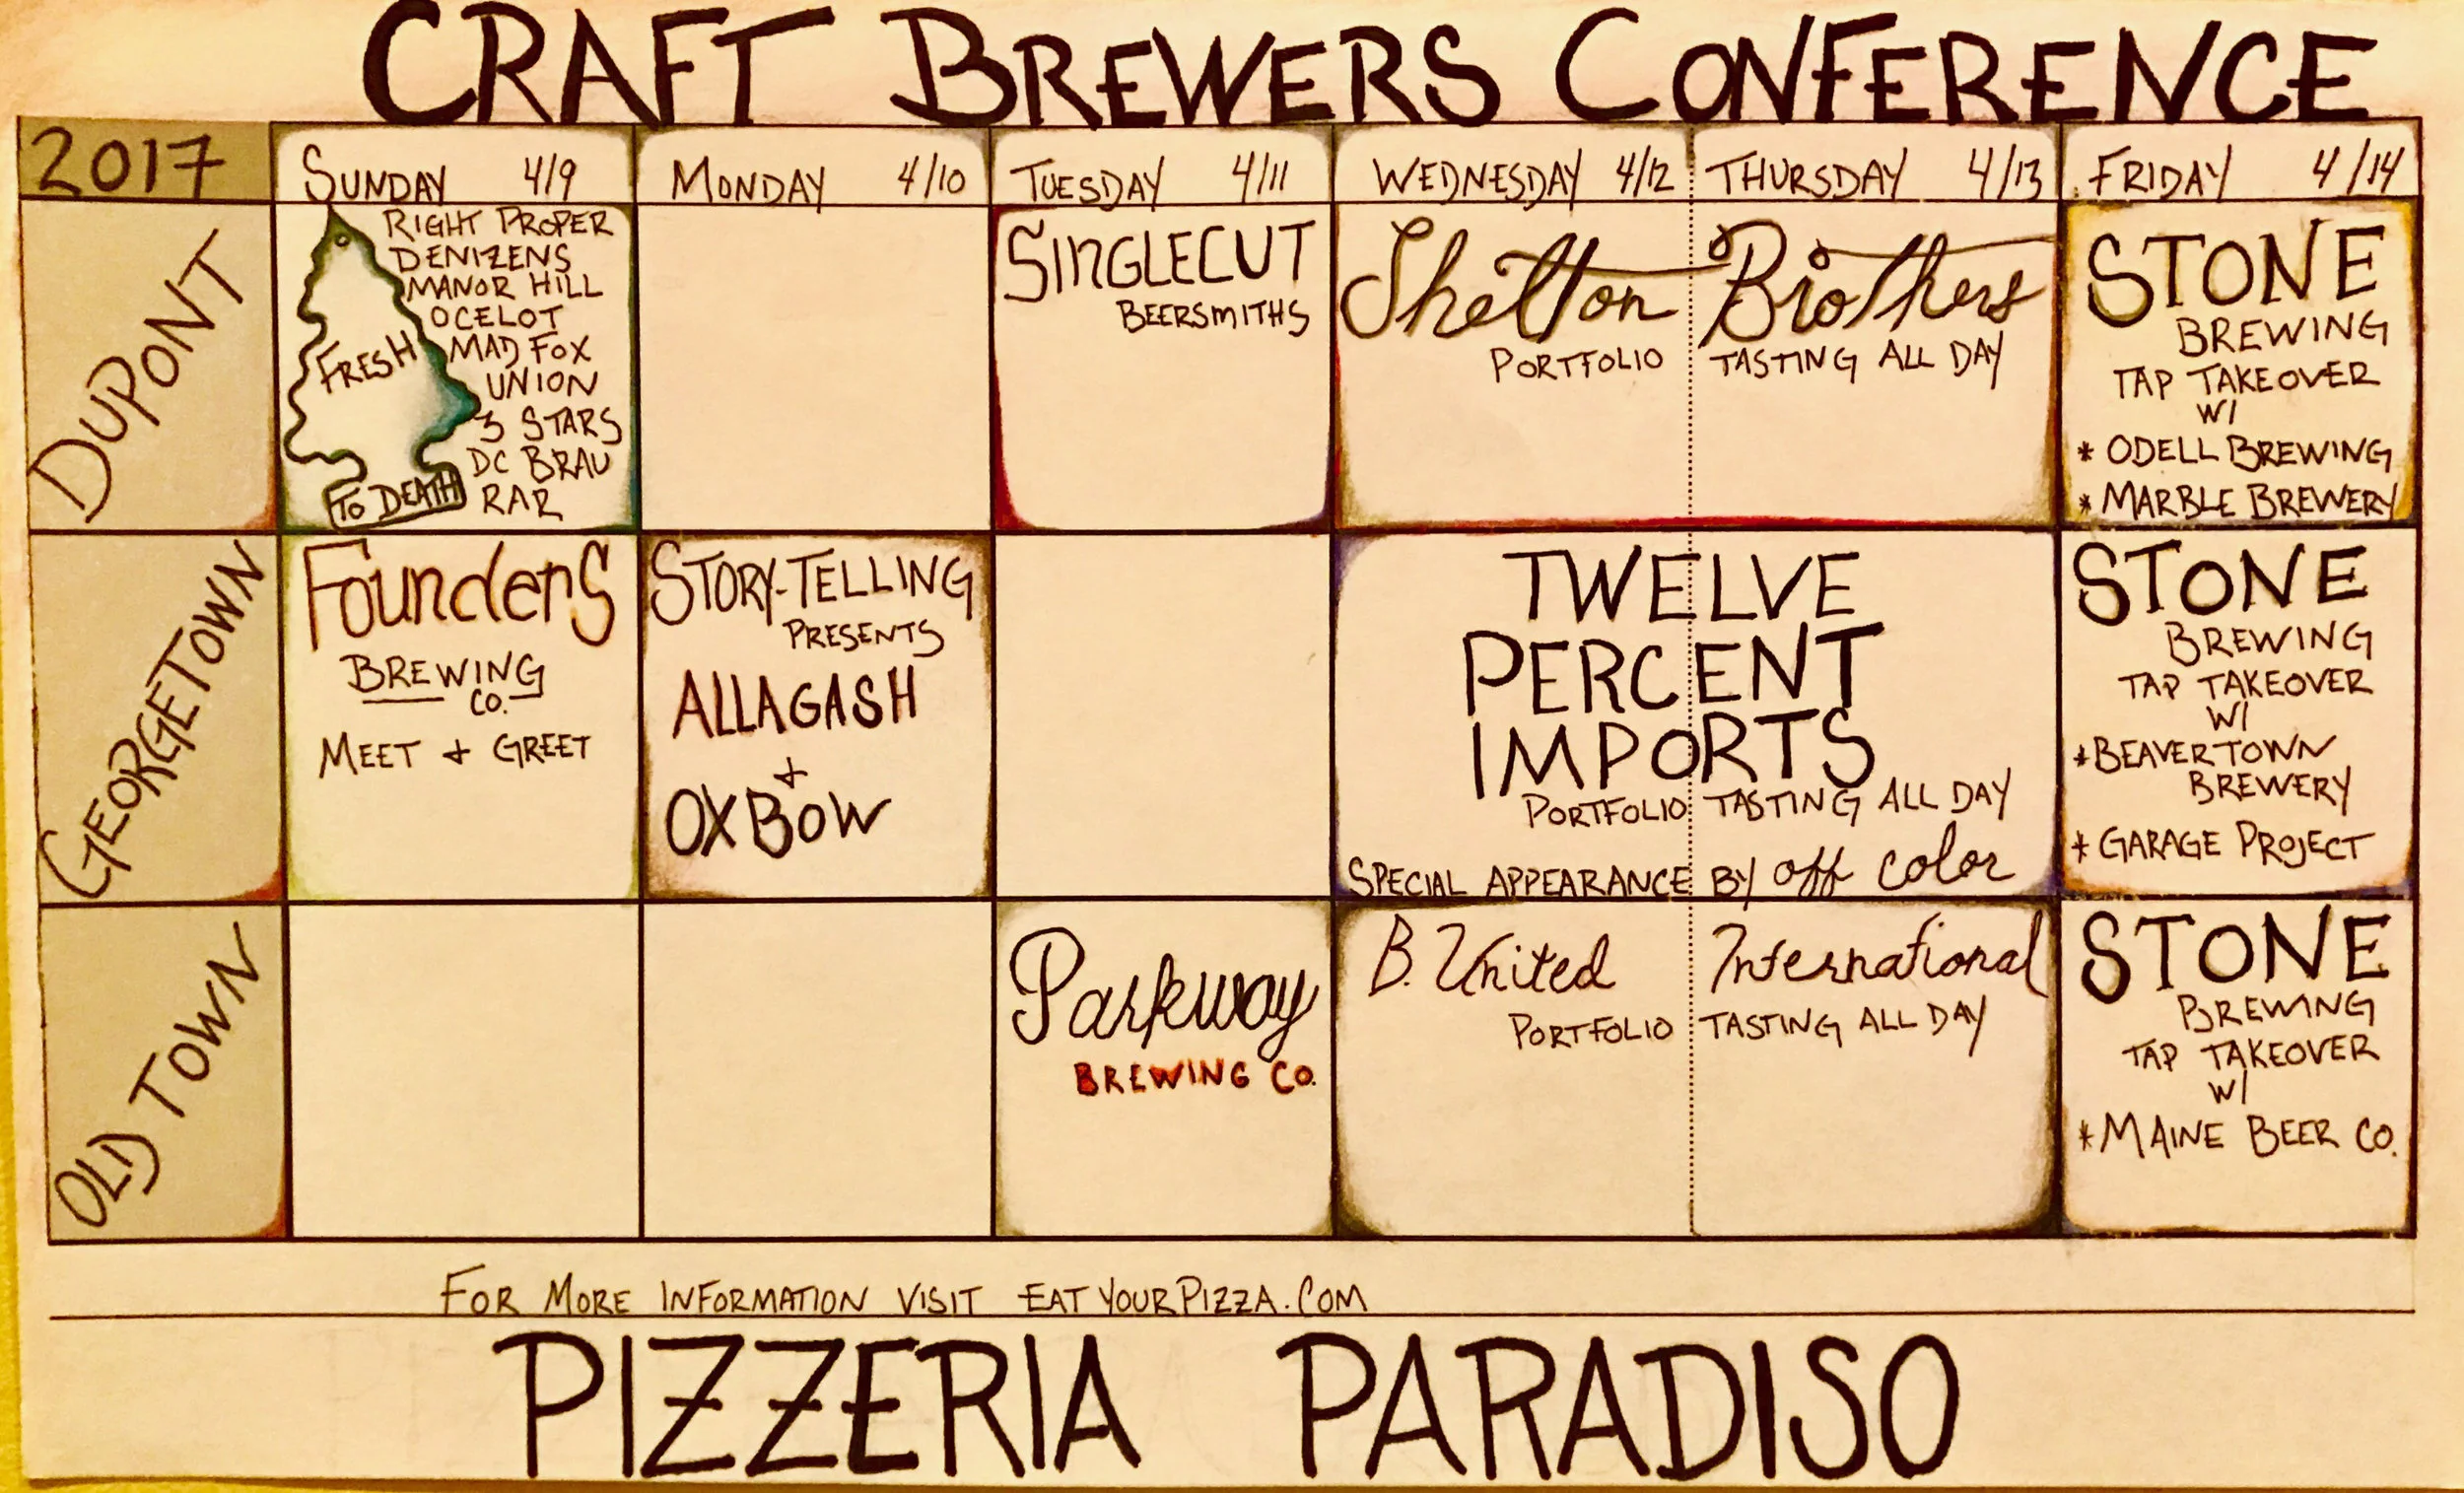 CRAFT BREWERS CONFERENCE
2017
SUNDAY 4/9
MONDAY 4/10
TUESDAY 4/11
WEDNESDAY 4/12
THURSDAY 4/13
FRIDAY 4/14
DUPONT
FRESH
TO DEATH
RIGHT PROPER
DENIZENS
MANOR HILL
OCELOT
MAD FOX
UNION
3 STARS
DC BRAU
RAR
SINGLECUT
BEERSMITHS
Shelton Brothers
PORTFOLIO TASTING ALL DAY
STONE
BREWING
TAP TAKEOVER
W/
* ODELL BREWING
* MARBLE BREWERY
GEORGETOWN
Founders
BREWING
CO.
MEET + GREET
STORY-TELLING
PRESENTS
ALLAGASH
+
OXBOW
TWELVE
PERCENT
IMPORTS
PORTFOLIO TASTING ALL DAY
SPECIAL APPEARANCE BY off color
STONE
BREWING
TAP TAKEOVER
W/
* BEAVERTOWN
BREWERY
* GARAGE PROJECT
OLD TOWN
Parkway
BREWING CO.
B. United International
PORTFOLIO TASTING ALL DAY
STONE
BREWING
TAP TAKEOVER
W/
* MAINE BEER CO.
FOR MORE INFORMATION VISIT EATYOURPIZZA.COM
PIZZERIA PARADISO